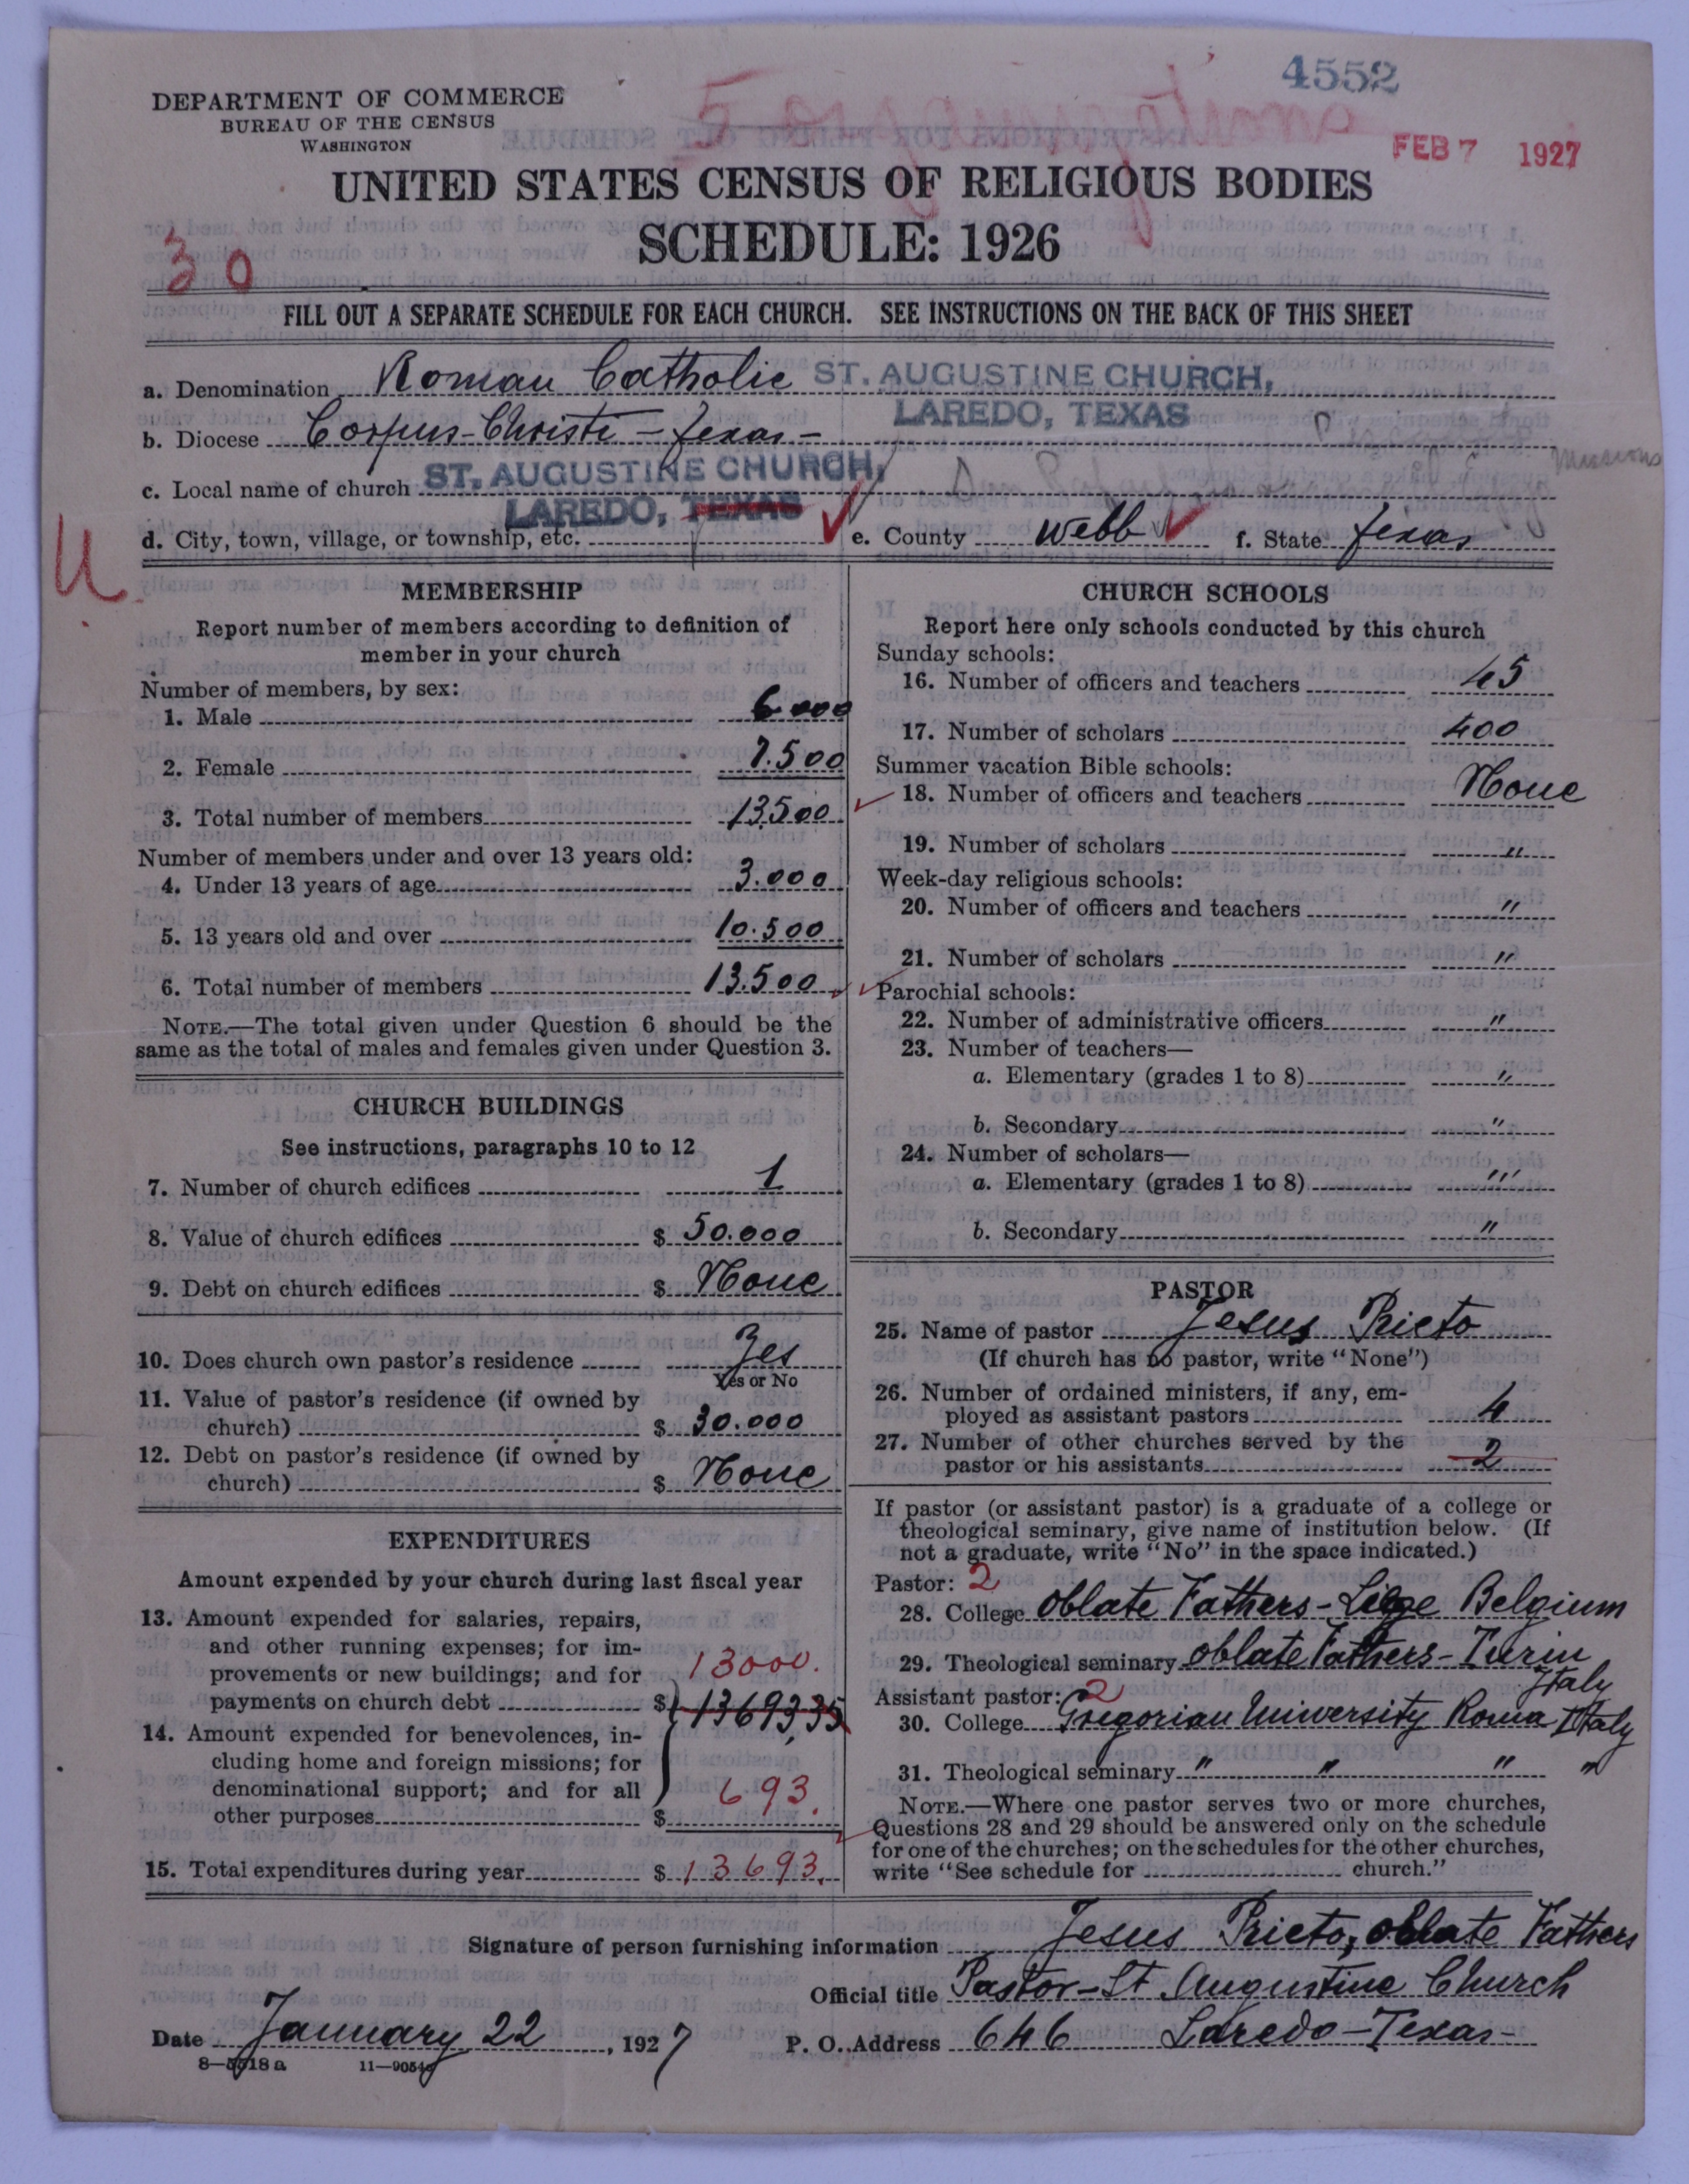 4552
DEPARTMENT OF COMMERCE
BUREAU OF THE CENSUS
WASHINGTON
FEB 7 1927
UNITED STATES CENSUS OF RELIGIOUS BODIES
SCHEDULE: 1926
30
FILL OUT A SEPARATE SCHEDULE FOR EACH CHURCH. SEE INSTRUCTIONS ON THE BACK OF THIS SHEET
a. Denomination Roman Catholic ST. AUGUSTINE CHURCH,
LAREDO, TEXAS
b. Diocese Corpus-Christi-Texas-
Missions
c. Local name of church ST. AUGUSTINE CHURCH,
LAREDO, TEXAS
d. City, town, village, or township, etc. e. County Webb f. State Texas
U
MEMBERSHIP
Report number of members according to definition of
member in your church
Number of members, by sex:
1. Male 6000
2. Female 7.500
3. Total number of members 13,500
Number of members under and over 13 years old:
4. Under 13 years of age 3.000
5. 13 years old and over 10.500
6. Total number of members 13.500
NOTE.—The total given under Question 6 should be the
same as the total of males and females given under Question 3.
CHURCH BUILDINGS
See instructions, paragraphs 10 to 12
7. Number of church edifices 1
8. Value of church edifices $ 50.000
9. Debt on church edifices $ None
10. Does church own pastor's residence Yes
Yes or No
11. Value of pastor's residence (if owned by
church) $ 30.000
12. Debt on pastor's residence (if owned by
church) $ None
EXPENDITURES
Amount expended by your church during last fiscal year
13. Amount expended for salaries, repairs,
and other running expenses; for im-
provements or new buildings; and for 13000.
payments on church debt $ 13693,35
14. Amount expended for benevolences, in-
cluding home and foreign missions; for
denominational support; and for all 693.
other purposes $
15. Total expenditures during year $ 13693.
CHURCH SCHOOLS
Report here only schools conducted by this church
Sunday schools:
16. Number of officers and teachers 45
17. Number of scholars 400
Summer vacation Bible schools:
18. Number of officers and teachers None
19. Number of scholars "
Week-day religious schools:
20. Number of officers and teachers "
21. Number of scholars "
Parochial schools:
22. Number of administrative officers "
23. Number of teachers—
a. Elementary (grades 1 to 8) "
b. Secondary "
24. Number of scholars—
a. Elementary (grades 1 to 8) "
b. Secondary "
PASTOR
25. Name of pastor Jesus Prieto
(If church has no pastor, write "None")
26. Number of ordained ministers, if any, em-
ployed as assistant pastors 4
27. Number of other churches served by the
pastor or his assistants 2
If pastor (or assistant pastor) is a graduate of a college or
theological seminary, give name of institution below. (If
not a graduate, write "No" in the space indicated.)
Pastor: 2
28. College Oblate Fathers-Liege Belgium
29. Theological seminary oblate Fathers-Turin
Italy
Assistant pastor: 2
30. College Gregorian University Roma Italy
31. Theological seminary " " " "
NOTE.—Where one pastor serves two or more churches,
Questions 28 and 29 should be answered only on the schedule
for one of the churches; on the schedules for the other churches,
write "See schedule for church."
Signature of person furnishing information Jesus Prieto, oblate Fathers
Official title Pastor-St Augustine Church
Date January 22, 1927 P. O. Address 646 Laredo-Texas-
8—5618 a 11—9054